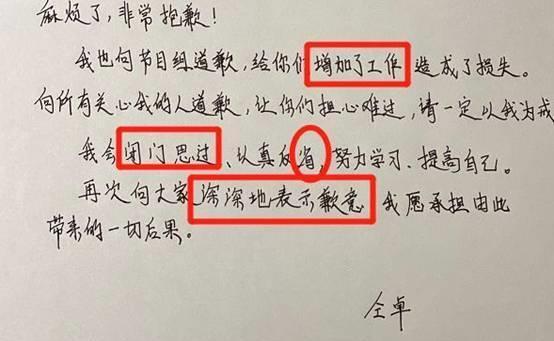 麻烦了,非常抱歉!
我也向节目组道歉,给你们增加了工作 造成了损失。
向所有关心我的人道歉,让你们担心难过,请一定以我为戒
我会闭门思过、认真反省,努力学习、提高自己。
再次向大家深深地表示歉意 我愿承担由此
带来的一切后果。
仝卓